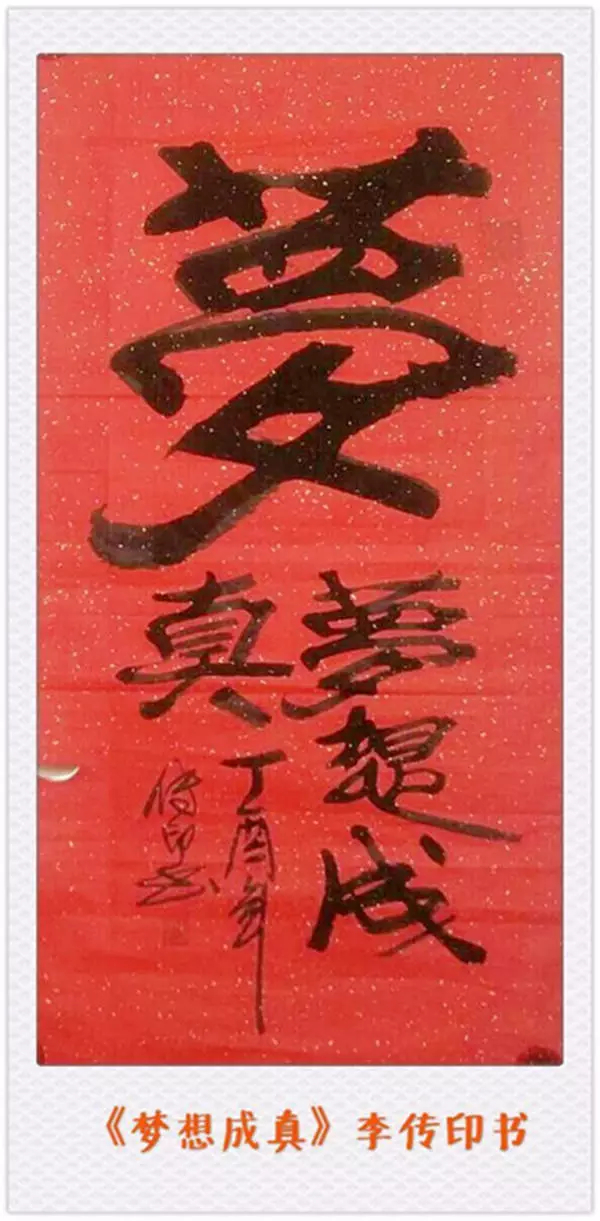 夢
夢想成
真
丁酉年
传印书
《梦想成真》李传印书